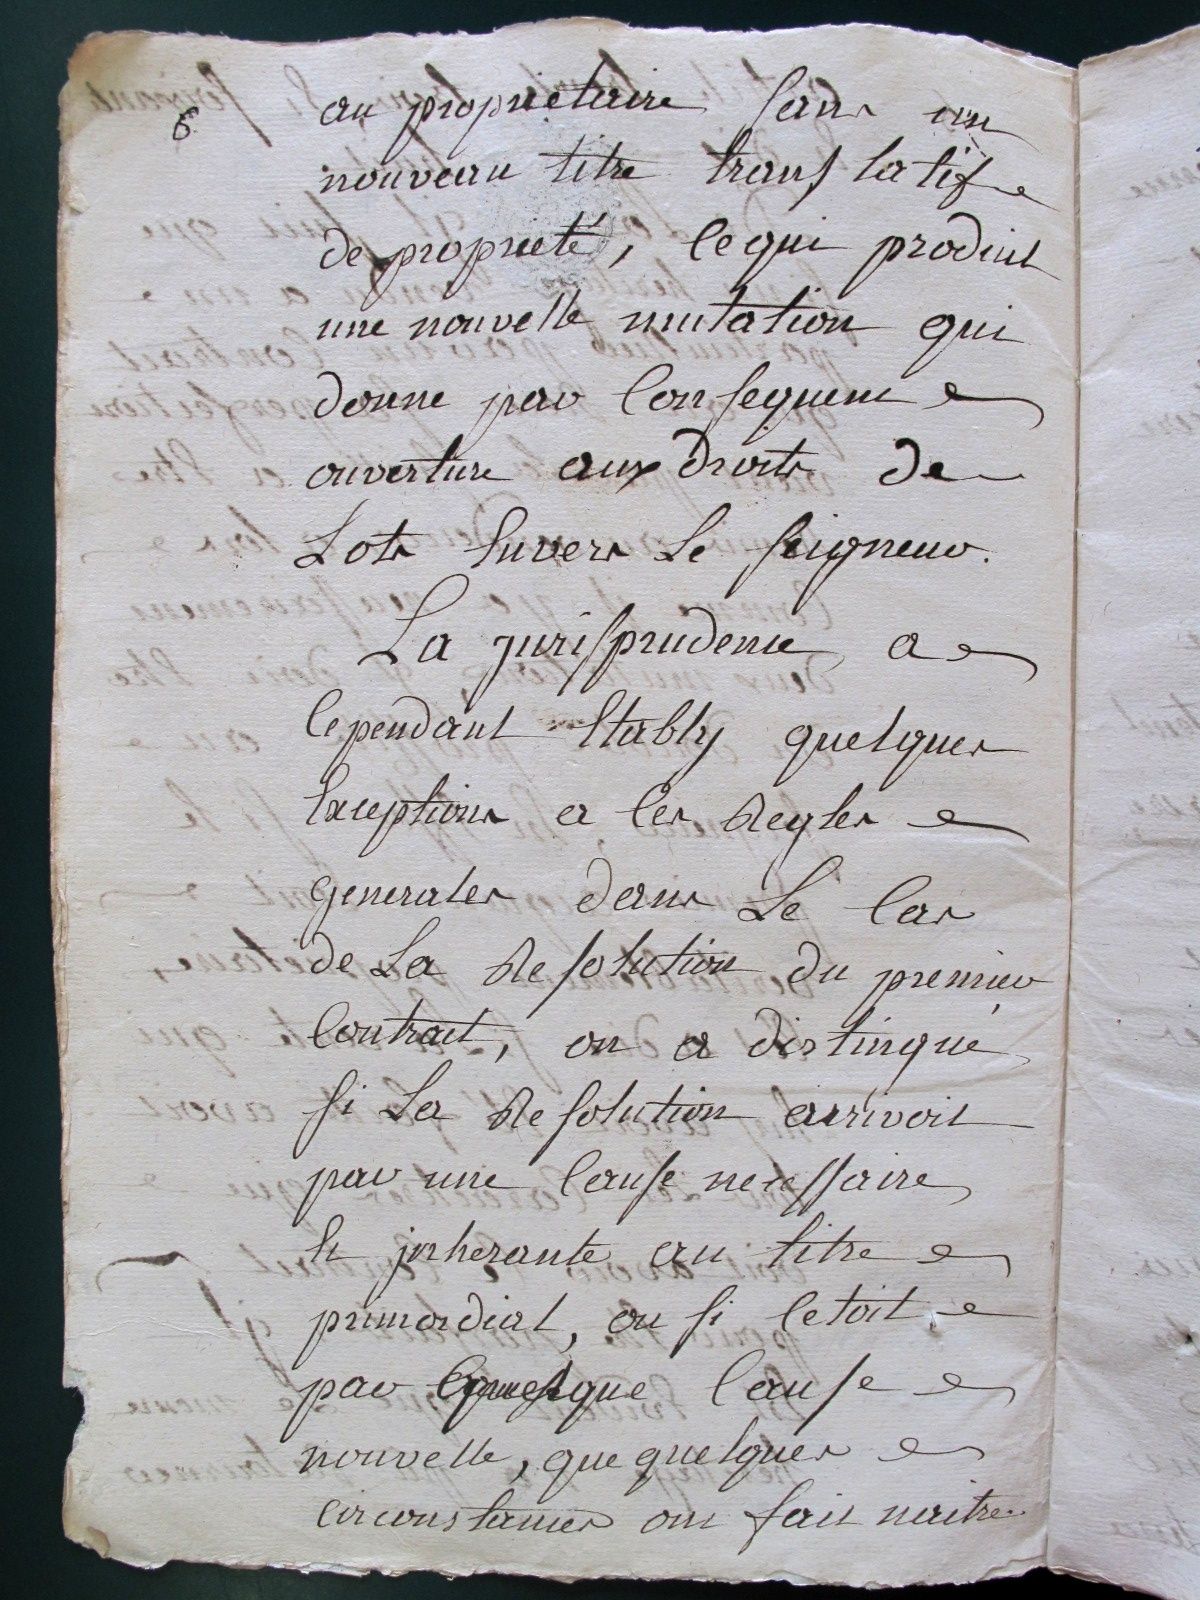 6
au proprietaire sans un
nouveau titre translatif
de proprieté, ce qui produit
une nouvelle mutation qui
donne par consequent
ouverture aux droits de
Lots Envers Le seigneur.
La jurisprudence a
cependant Etably quelques
Exceptions a ces Regles
generales dans Le cas
de La Resolution du premier
contrait, on a distingué
si La Resolution arrivoit
par une cause necessaire
Et jnherante au titre
primordial, ou si cetoit
par quelque cause
nouvelle, que quelques
circonstances ont fait naitre